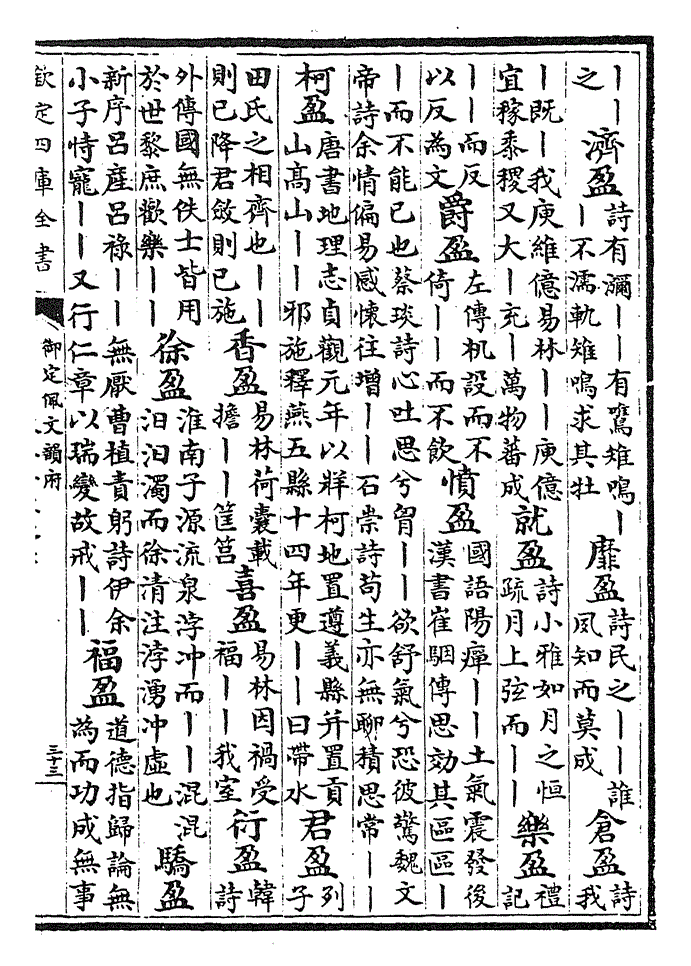 ｜｜之濟盈詩有瀰｜｜有鷕雉鳴｜｜不濡軌雉鳴求其牡靡盈詩民之｜｜誰夙知而莫成倉盈詩我
｜既｜我庾維億易林｜｜庾億宜稼黍稷又大｜充｜萬物蕃成就盈詩小雅如月之恒疏月上弦而｜｜樂盈禮記
｜｜而反以反為文爵盈左傳机設而不倚｜｜而不飲憤盈國語陽癉｜｜土氣震發後漢書崔駰傳思効其區區｜
｜而不能已也蔡琰詩心吐思兮胷｜｜欲舒氣兮恐彼驚魏文帝詩余情偏易感懷往增｜｜石崇詩苟生亦無聊積思常｜｜
柯盈唐書地理志貞觀元年以牂柯地置遵義縣并置貢山高山｜｜邪施釋燕五縣十四年更｜｜曰帶水君盈列子
田氏之相齊也｜｜則已降君斂則已施香盈易林荷囊載擔｜｜筐筥喜盈易林因禍受福｜｜我室衍盈韓詩
外傳國無佚士皆用於世黎庶歡樂｜｜徐盈淮南子源流泉浡冲而｜｜混混汩汩濁而徐清注浡湧冲虛也驕盈
新序呂産呂祿｜｜｜無厭曹植責躬詩伊余小子恃寵｜｜又行仁章以瑞變故戒｜｜福盈道德指歸論無為而功成無事
欽定四庫全書
御定佩文韻府
三十三